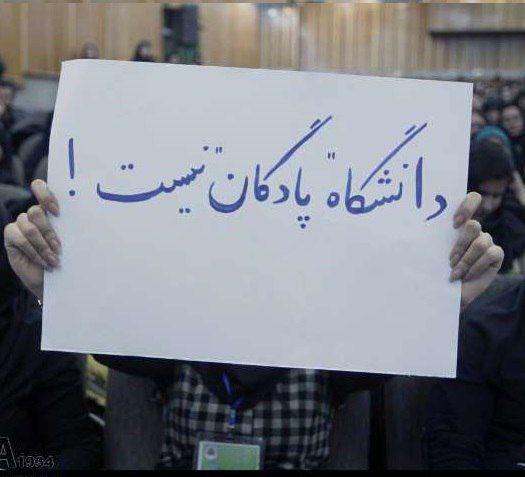 دانشگاه "پادگان" نیست !
A 1994